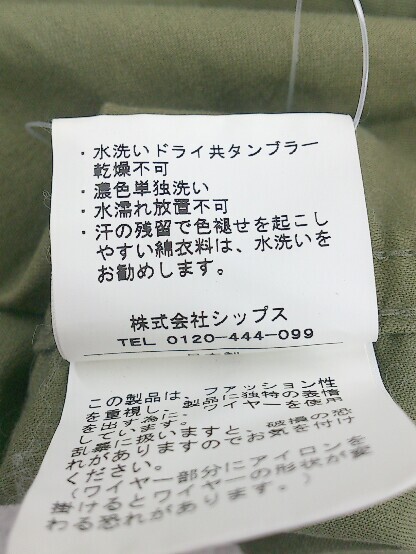 ・水洗いドライ共タンブラー
乾燥不可
・濃色単独洗い
・水濡れ放置不可
・汗の残留で色褪せを起こし
やすい綿衣料は、水洗いを
お勧めします。
株式会社シップス
TEL 0120-444-099
この製品は、ファッション性
を重視し、製品に独特の表情
を出す為に、ワイヤーを使用
しています。
乱暴に扱いますと、破損の恐
れがありますのでお気を付け
ください。
(ワイヤー部分にアイロンを
掛けるとワイヤーの形状が変
わる恐れがあります。)